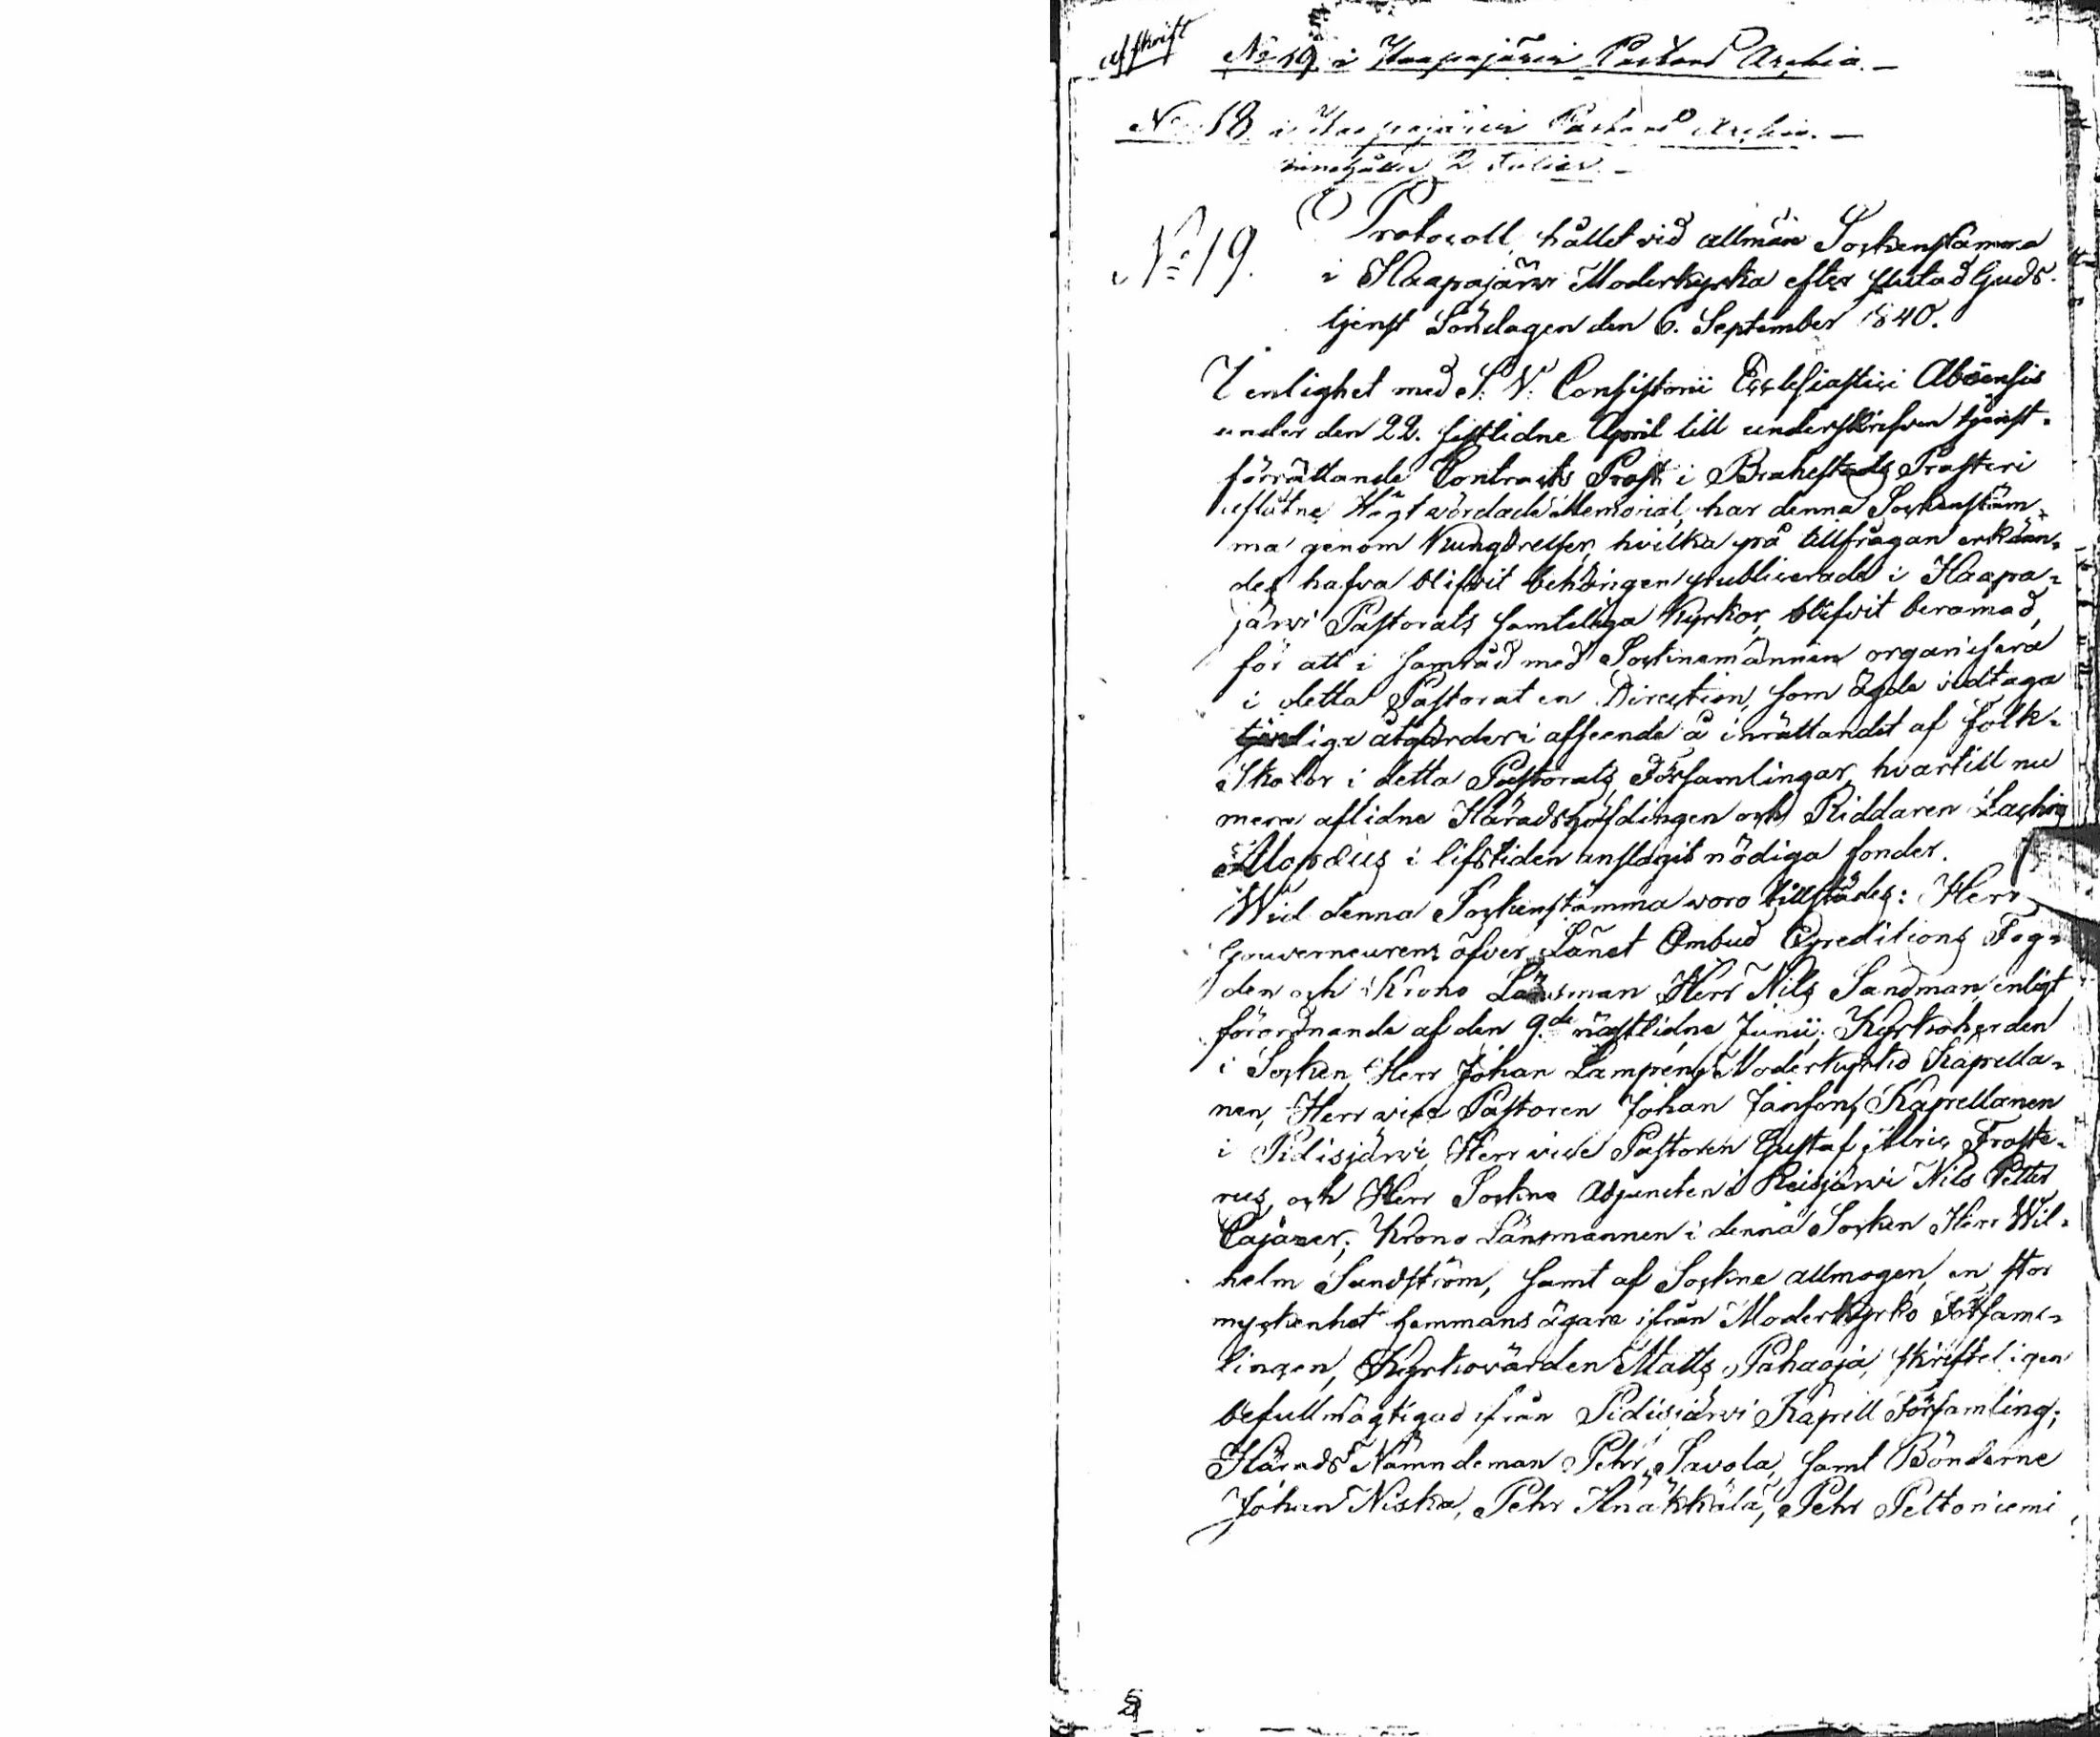 afskrift
No 19. i Haapajärvi Pastors Archiv. —
No 18 i Haapajärvi Pastors Archiv. —
innehåller 2 folier. —
No 19. Protocoll, hållet vid allmän Sockenstämma
i Haapajärvi Moderkyrka efter slutad Guds-
tjenst Söndagen den 6. September 1840.
I enlighet med S. V. Consistorii Ecclesiastici Aboensis
under den 22. sistlidne April till underskrifven tjenst-
förrättande Contracts Prost i Brahestads Prosteri
aflåtne Högtvördade Memorial, har denna Sockenstäm-
ma genom Kungörelser, hvilka på tillfrågan erkän-
des hafva blifvit behörigen publicerade i Haapa-
järvi Pastorats samteliga Kyrkor, blifvit beramad,
för att i samråd med Socknemännen organisera
i detta Pastorat en Direction, som ägde vidtaga
tjenliga åtgärder i afseende å inrättandet af folk-
Skolor i detta Pastorats Församlingar, hvartill nu
mera aflidne Häradshöfdingen och Riddaren Zachris
Alopæus i lifstiden anslagit nödiga fonder.
Wid denna Sockenstämma woro tillstädes: Herr
Gouverneurens öfver Länet Ombud Expeditions Fog-
den och Krono Länsman Herr Nils Sandman, enligt
förordnande af den 9.de nästlidne Junii; Kyrkoherden
i Socken Herr Johan Lampén, Moderkyrko Kapella-
nen, Herr vice Pastoren Johan Janson, Kapellanen
i Pidisjärvi Herr vice Pastoren Gustaf Ulric Froste-
rus, och Herr Sockne Adjuncten i Reisjärvi Nils Petter
Cajaner; Krono Länsmannen i denna Socken Herr Wil-
helm Sandström, samt af Sockne allmogen, en stor
myckenhet hemmans ägare ifrån Moderkyrko Försam-
lingen, Kyrkovärden Matts Pahaoja, skrifteligen
befullmägtigad ifrån Pidisjärvi Kapell Församling;
Härads Nämndeman Pehr Savola, samt Bönderne
Johan Niska, Pehr Knäkkälä, Pehr Peltoniemi